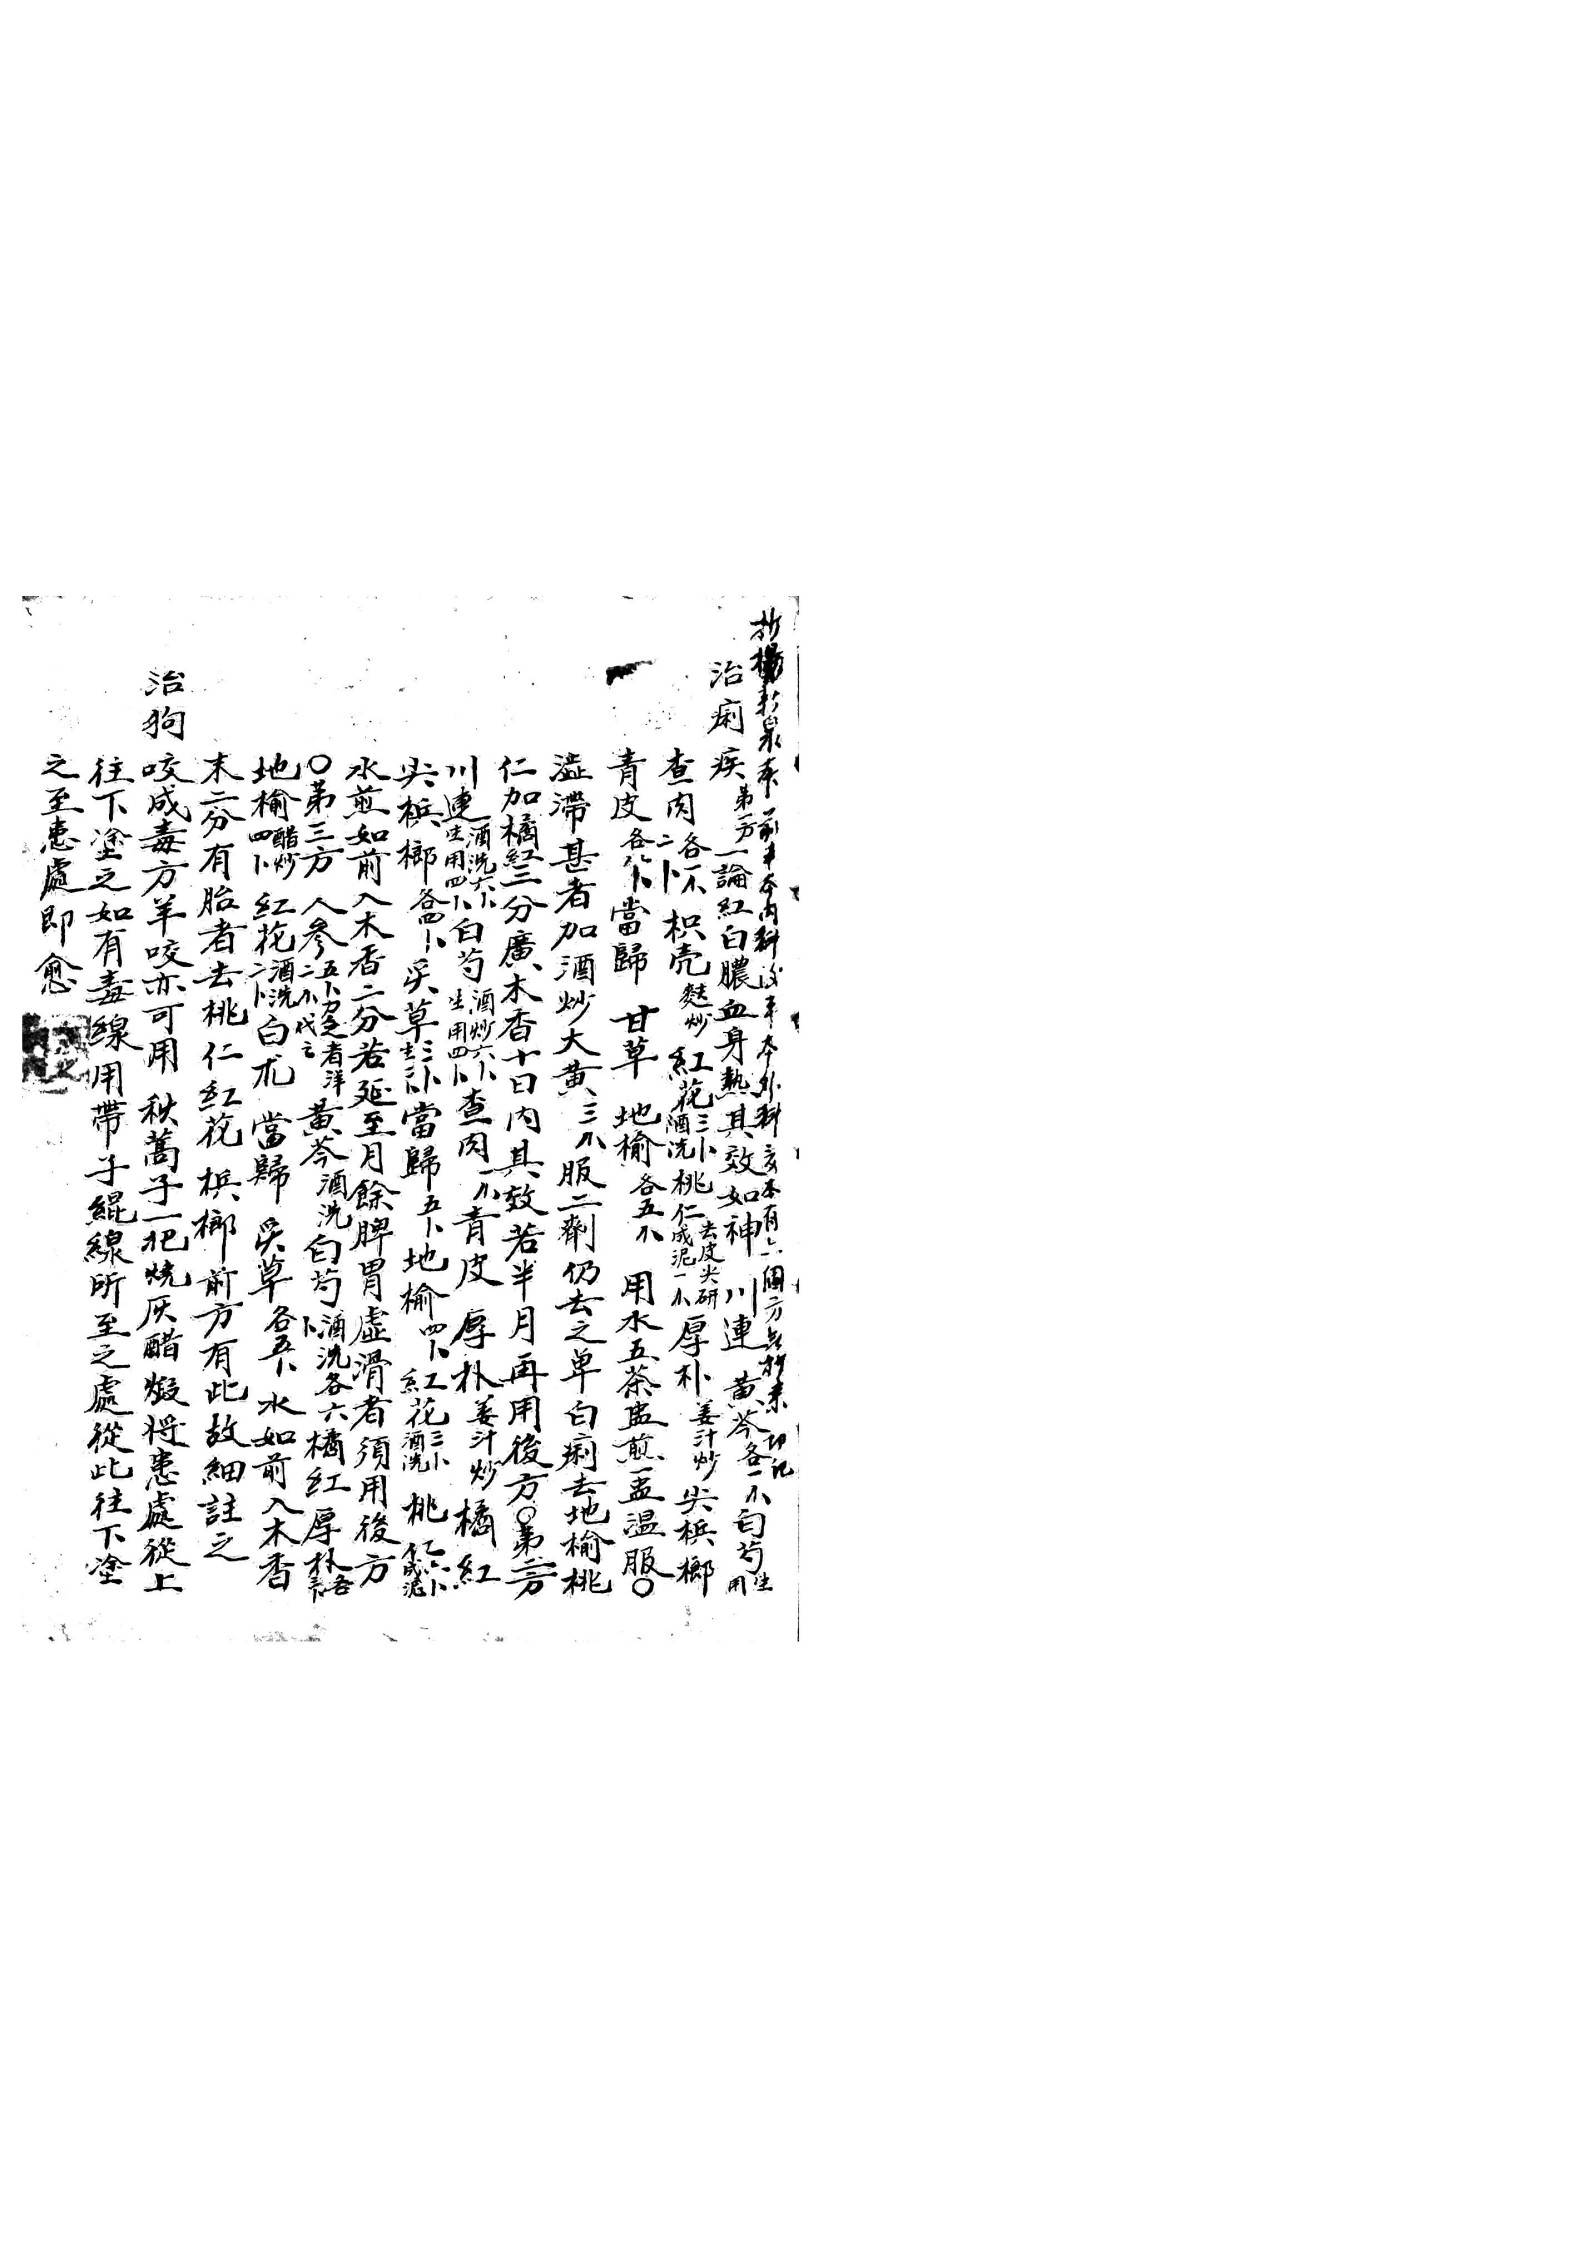 抄楊新泉本前半本內科後半本外科文本有六個方亦抄來切記
治痢疾第一方一論紅白膿血身熱其效如神川連黃芩各一不白芍生用
查肉各一不二卜枳壳麩炒紅花三卜酒洗桃仁去皮尖研成泥一不厚朴姜汁炒尖梹榔
青皮各八卜當歸甘草地榆各五不用水五茶盅煎一盅温服〇
澁滯甚者加酒炒大黄三不服二劑仍去之单白痢去地榆桃
仁加橘紅三分廣木香十日內其效若半月再用後方〇第二方
川連酒洗六卜生用四卜白芍酒炒六卜生用四卜查肉一不青皮厚朴姜汁炒橘紅
尖梹榔各四卜炙草三卜生三卜當歸五卜地榆四卜紅花三卜酒洗桃仁六卜成泥
水煎如前入木香二分若延至月餘脾胃虛滑者須用後方
〇第三方人參五卜力乏者洋二不代之黃芩酒洗白芍酒洗各六卜橘紅厚朴各三卜
地榆醋炒四卜紅花酒洗二卜白朮當歸炙草各五卜水如前入木香
末二分有胎者去桃仁紅花梹榔前方有此故細註之
治狗咬成毒方羊咬亦可用秋蒿子一把烧灰醋煅将患處從上
往下塗之如有毒線用帶子緄線所至之處從此往下塗
之至患處即愈